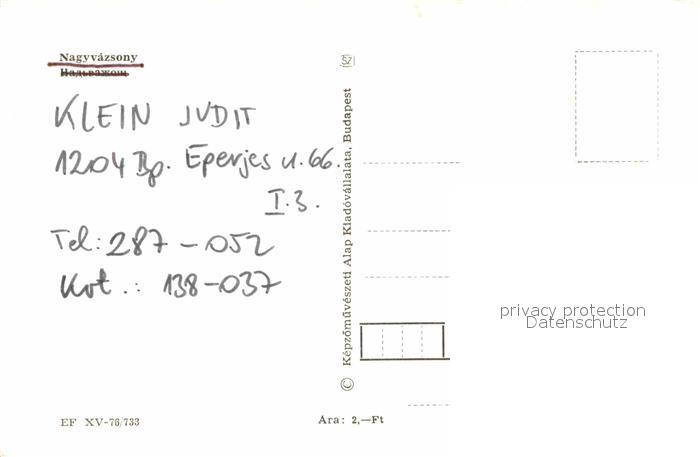 Nagyvázsony
Надьважонь
KLEIN JUDIT
1204 Bp. Eperjes u. 66.
I. 3.
Tel: 287-052
Kvt.: 138-037
EF XV-76/733
SZ
© Képzőművészeti Alap Kiadóvállalata, Budapest
Ara: 2,—Ft
privacy protection
Datenschutz